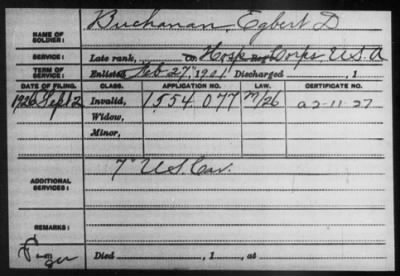 NAME OF SOLDIER: Buchanan, Egbert D
SERVICE: Late rank, Co. Hosp Reg't Corps U.S.A
TERM OF SERVICE: Enlisted Feb 27, 1901 Discharged , 1
DATE OF FILING. CLASS. APPLICATION NO. LAW. CERTIFICATE NO.
1926 Sep 12 Invalid, 1554 077 M/26 a2-11-27
Widow,
Minor,
ADDITIONAL SERVICES: 7" U.S. Cav.
REMARKS:
Died , 1 , at